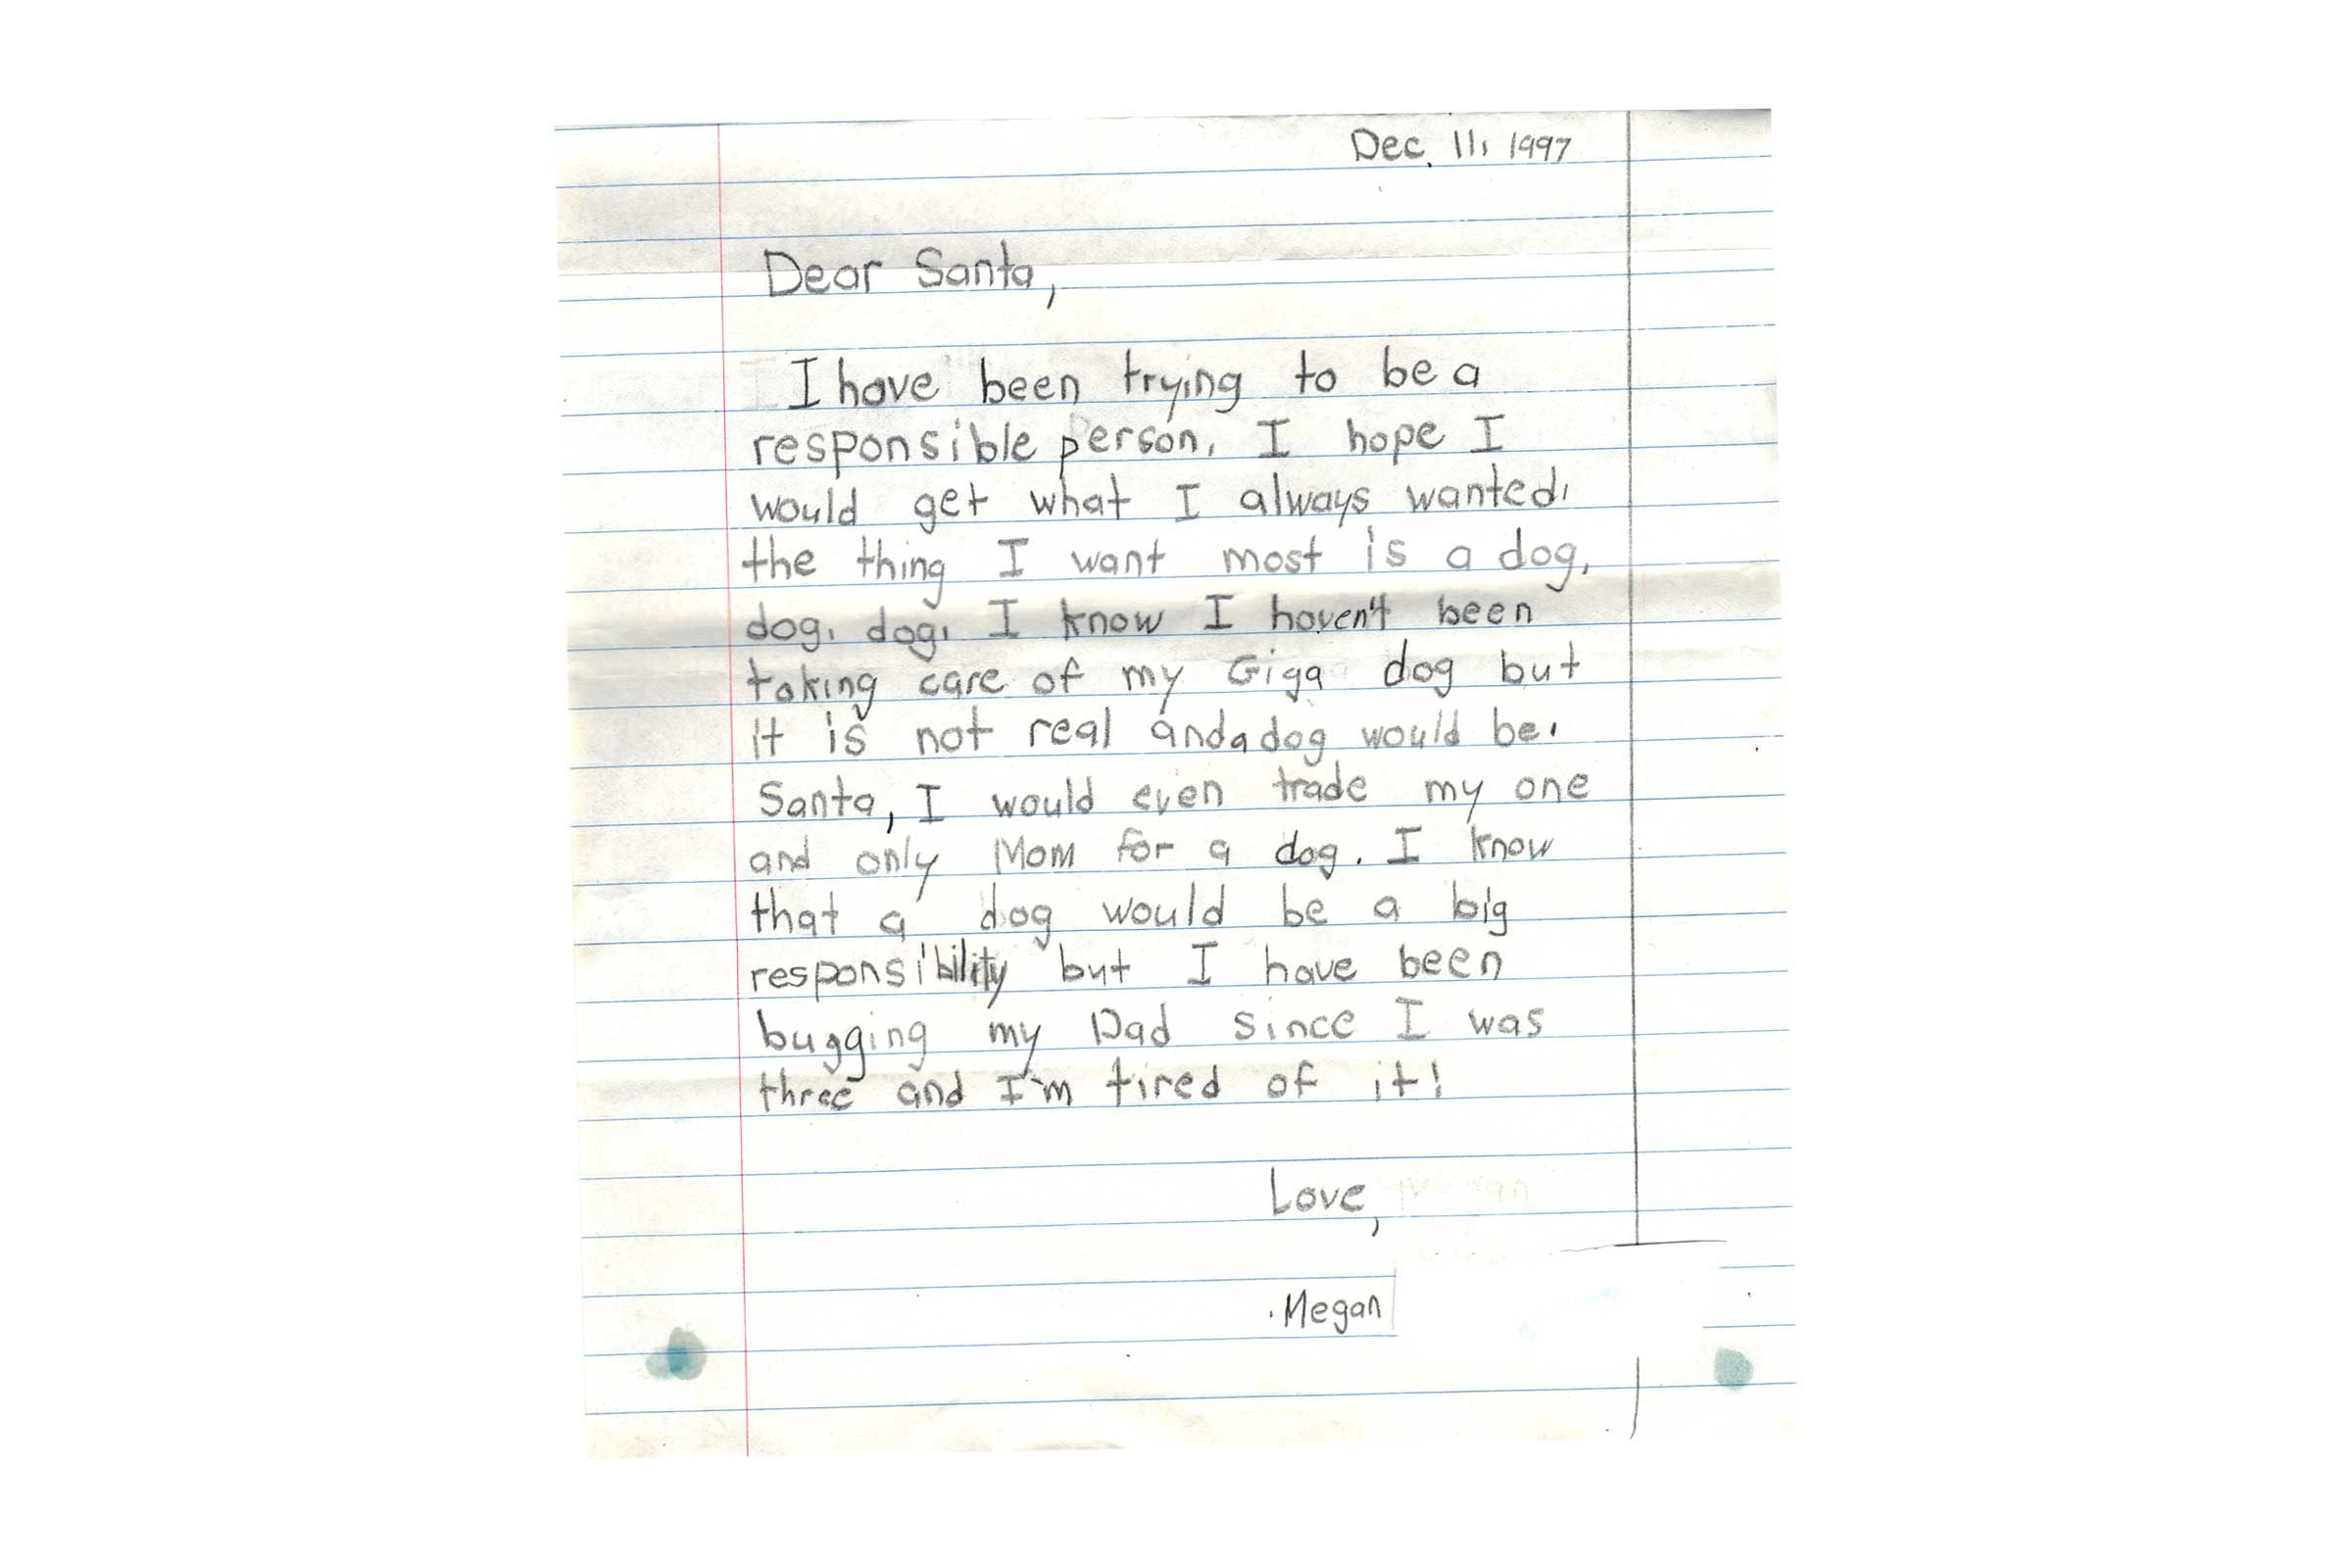 Dec. 11, 1997
Dear Santa,
I have been trying to be a
responsible person, I hope I
would get what I always wanted,
the thing I want most is a dog,
dog, dog, I know I haven't been
taking care of my Giga dog but
it is not real and a dog would be.
Santa, I would even trade my one
and only Mom for a dog. I know
that a dog would be a big
responsibility but I have been
bugging my Dad since I was
three and I'm tired of it!
Love,
Megan